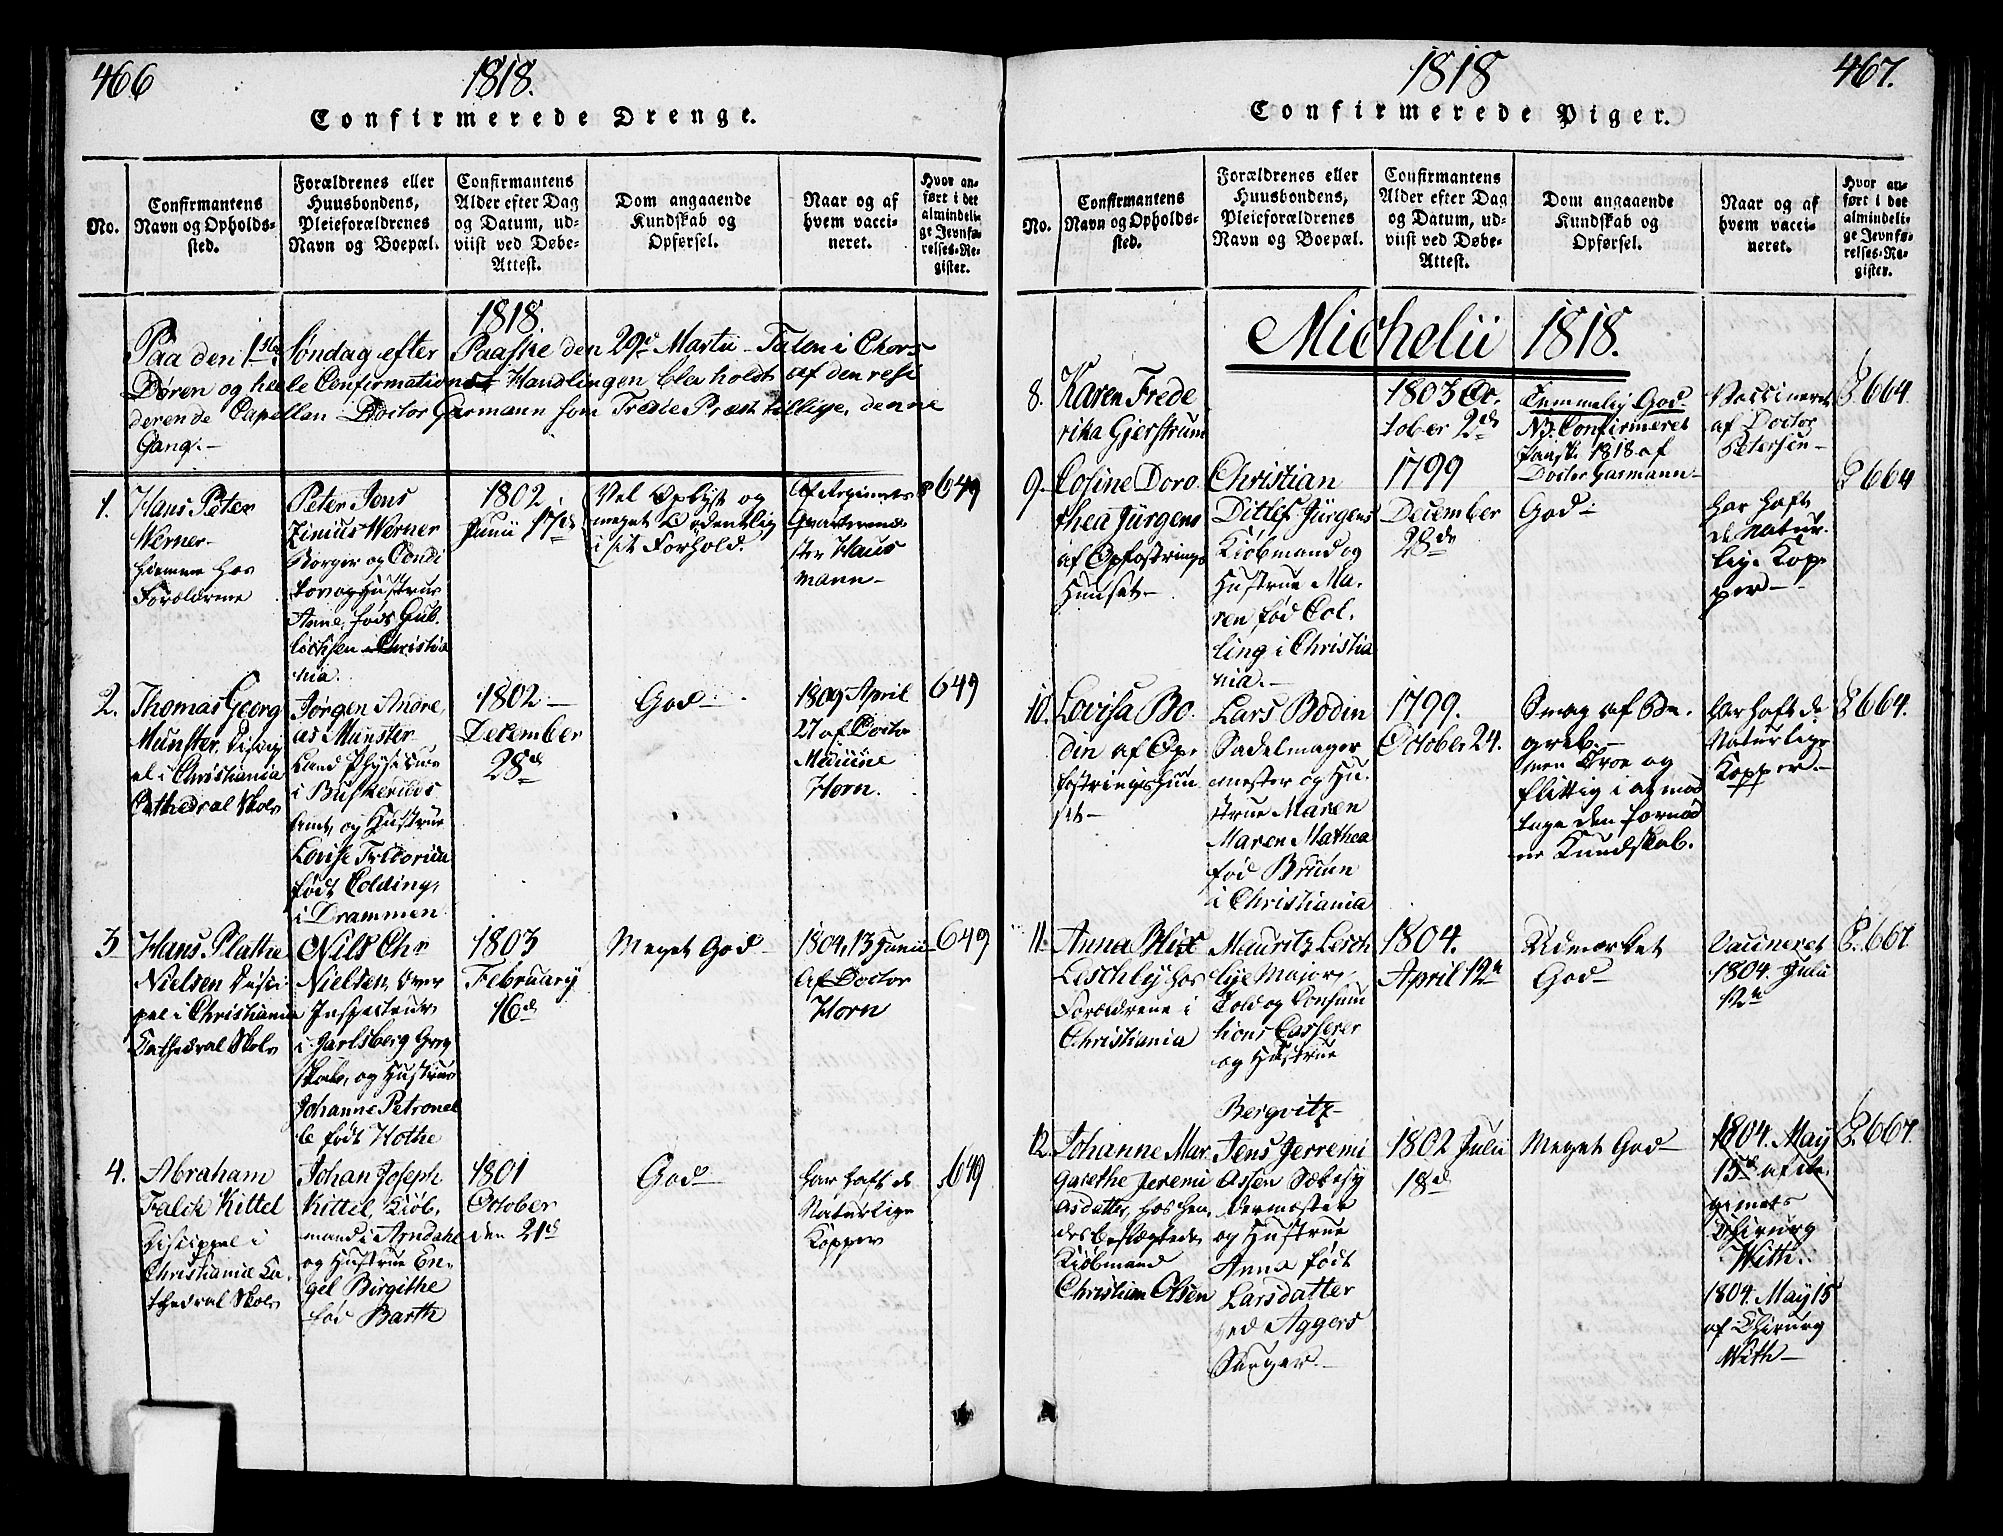 466
1818.
Confirmerede Drenge.
No.
Confirmantens
Navn og Opholds-
sted.
Forældrenes eller
Huusbondens,
Pleieforældrenes
Navn og Boepæl.
Confirmantens
Alder efter Dag
og Datum, ud-
viist ved Døbe-
Attest.
Dom angaaende
Kundskab og
Opførsel.
Naar og af
hvem vacci-
neret.
Hvor an-
ført i det
almindeli-
ge Jevnfø-
relses-Re-
gister.
1818.
Paa den 1ste Søndag efter Paaske den 29de Martii Talen i Chors
Døren og heele Confirmations Handlingen blev holdt af den resi
derende Capellan Doctor Garmann som Tredie Præst tillige, denne
Gang.-
1.
Hans Peter
Werner
hiemme hos
Forældrene
Peter Jens
Zinius Werner
Borger og Condi
tor og Hustrue
Anne, føds Gul.
i Christia
nia.
1802
Junii 17de
Vel Oplyst og
meget Ordentlig
i sit Forhold.
Af Regiments
Qvarteerme
ster Haus
mann-
649
2.
Thomas Georg
Munster Disip
el i Christiania
Cathedral Skole
Jørgen Andre
as Munster
Land Physicus
i Buskeruds
Amt, og Hustrue
Lovise Friderica
født Colding,
i Drammen
1802-
December
28de
God-
1809 April
27 af Doctor
Horn.
649
3
Hans Plathe
Nielsen Disci
pel i Christiania
Cathedral Skole
Nils Chr
Nielsen, Over
Inspecteur
i Jarlsberg Grev
skab, og Hustrue
Johanne Petronel
le født Hothe
1803
February
16de
Meget God-
1804, 13 Junii
Af Doctor
Horn
649
4.
Abraham
Falck Kittel
Discippel i
Christianiæ Ca-
thedral Skole
Johan Joseph
Kittel, Kiøb-
mand i Arndahl
og Hustrue En-
gel Birgithe
fød Barth
1801
October
den 21de
God-
har haft de
Naturlige
Kopper
649
1818
467.
Confirmerede Piger.
No.
Confirmantens
Navn og Opholds-
sted.
Forældrenes eller
Huusbondens,
Pleieforældrenes
Navn og Boepæl.
Confirmantens
Alder efter Dag
og Datum, ud-
viist ved Døbe-
Attest.
Dom angaaende
Kundskab og
Opførsel.
Naar og af
hvem vacci-
neret.
Hvor an-
ført i det
almindeli-
ge Jevnfø-
relses-Re-
gister.
Michelii 1818.
8.
Karen Frede
rika Gjerstrum
1803 Oc.
tober 2de
Temmelig God
NB. Confirmeret
Paaske 1818 af
Doctor Garmann-
Vaccineret
af Doctor
Petersen-
664
9.
Coline Doro.
thea Jürgens
af Opfostrings
Huuset-
Christian
Ditlef Jürgens
Kiøbmand og
Hustrue Ma-
ren fød Col.
ling i Christia
nia.-
1799
December
28de
God-
har haft
de Natur-
lige Kop
per-
664
10.
Lovisa Bo.
din af Op-
fostringshuu
set-
Lars Bodin
Sadelmager
mester og Hu-
strue Maren
Maren Mathea
fød Bruun
i Christiania
1799.
October 24.
Svag af Be-
greb.-
men Troe og
flittig i at mod
tage den fornød
ne Kundskab.
har haft de
Naturlige
Kopper.-
664.
11.
Anna Blix
Leschley hos
Forældrene i
Christiania
Mauritz Lesch
lye Major,
Told og Consum
tions Casserer
og Hustrue
Bergvitz-
1804.
April 12te
Udmærket
God-
Vaccineret
1804. Julii
12te
667
12.
Johanne Mar.
garethe Jeremi
asdatter, hos hen,
des beslægtede
Kiøbmand
Christian Olsen
Jens Jerremi
Assen
og Hustrue
Anna født
Larsdatter
ved Aggers
1802 Julii
18de
Meget God-
1804. May
15de af Re-
giments
Chirurg
With.
1804. May 15
af Chirurg
With-
667.